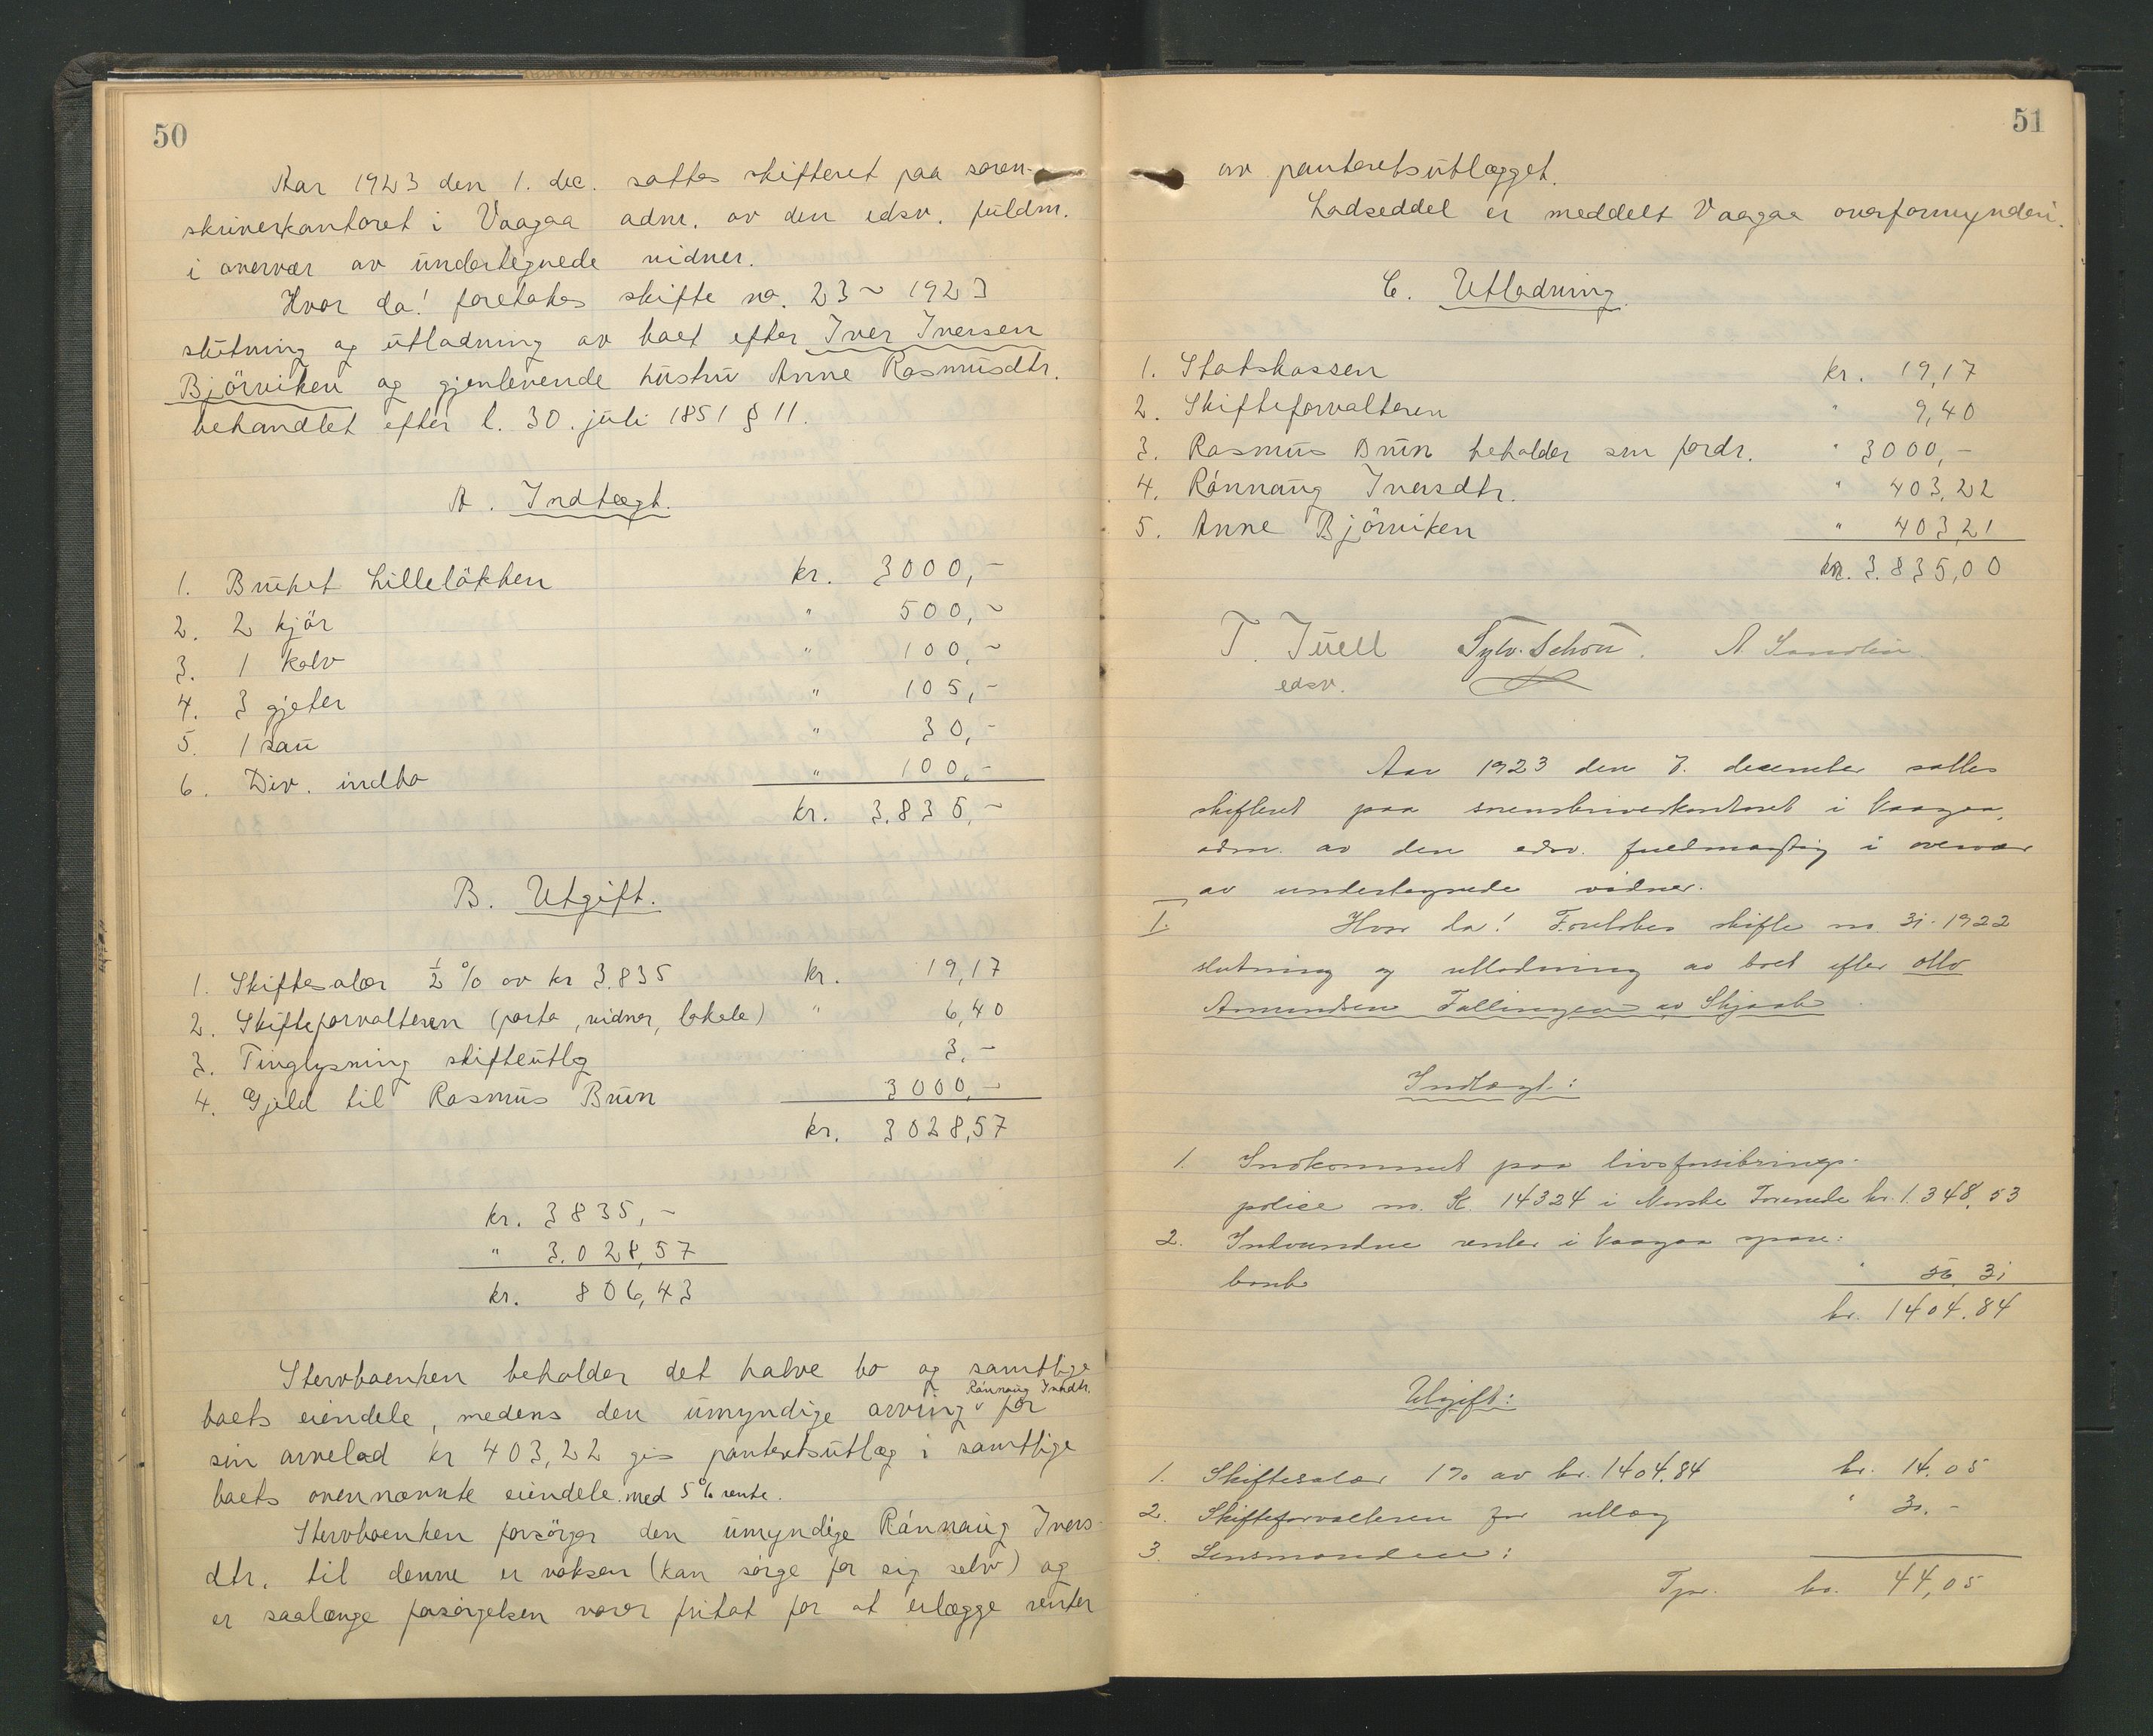 50
Aar 1923 den 1. dec. sattes skifteret paa soren-
skriverkontoret i Vaagaa adm. av den edsv. fuldm.
i overvær av undertegnede vidner.
Hvor da! foretokes skifte no. 23 ~ 1923
slutning og utlodning av boet efter Iver Iversen
Bjørviken og gjenlevende hustru Anne Rasmusdtr.
behandlet efter l. 30. juli 1851 § 11.
A. Indtægt.
1. Bruket Lilleløkken kr. 3000,-
2. 2 kjør " 500,-
3. 1 kalv " 100,-
4. 3 gjeter " 105,-
5. 1 sau " 30,-
6. Div. indbo " 100,-
kr. 3.835,-
B. Utgift.
1. Skiftesalær ½ % av kr 3.835 kr. 19,17
2. Skifteforvalteren (porto, vidner, lokale) " 6,40
3. Tinglysning skifteutlg 3,-
4. Gjeld til Rasmus Bruun 3000,-
kr. 3028,57
kr. 3835,-
" 3.028,57
kr. 806,43
Stervboenken beholder det halve bo og samtlige
boets eiendele, medens den umyndige arving Ránnaug Iversdtr. for
sin arvelod kr 403,22 gis panteretsutlæg i samtlige
boets ovennævnte eiendele med 5% rente.
Stervboenken forsørger den umyndige Ránnaug Ivers-
dtr. til denne er voksen (kan sørge for sig selv) og
er saalænge forsørgelsen varer fritat for at erlægge renter
51
av panteretsutlægget.
Lodseddel er meddelt Vaagaa overformynderi.
C. Utlodning.
1. Statskassen kr. 19,17
2. Skifteforvalteren " 9,40
3. Rasmus Bruun beholder sin fordr. " 3000,-
4. Ránnaug Iversdtr. " 403,22
5. Anne Bjørviken " 403,21
kr. 3.835,00
T. Juell Sylv. Schou. A. Sandlie
edsv.
Aar 1923 den 7. december sattes
skifteret paa sorenskriverkontoret i Vaagaa,
adm. av den edsv. fuldmægtig i overvær
av undertegnede vidner.
I. Hvor da! Foretokes skifte no. 31-1922
slutning og utlodning av boet efter Otto
Amundsen Fallingen av Skjaak.
Indtægt:
1. Indkommet paa livsforsikrings-
polise no. K. 14324 i Norske Forenede kr. 1.348,53
2. Indvundne renter i Vaagaa spare-
bank " 56,31
kr. 1404,84
Utgift:
1. Skiftesalær 1% av kr. 1404,84 kr. 14,05
2. Skifteforvalteren for utlæg " 30,-
3. Lensmanden:
Tps. kr. 44,05